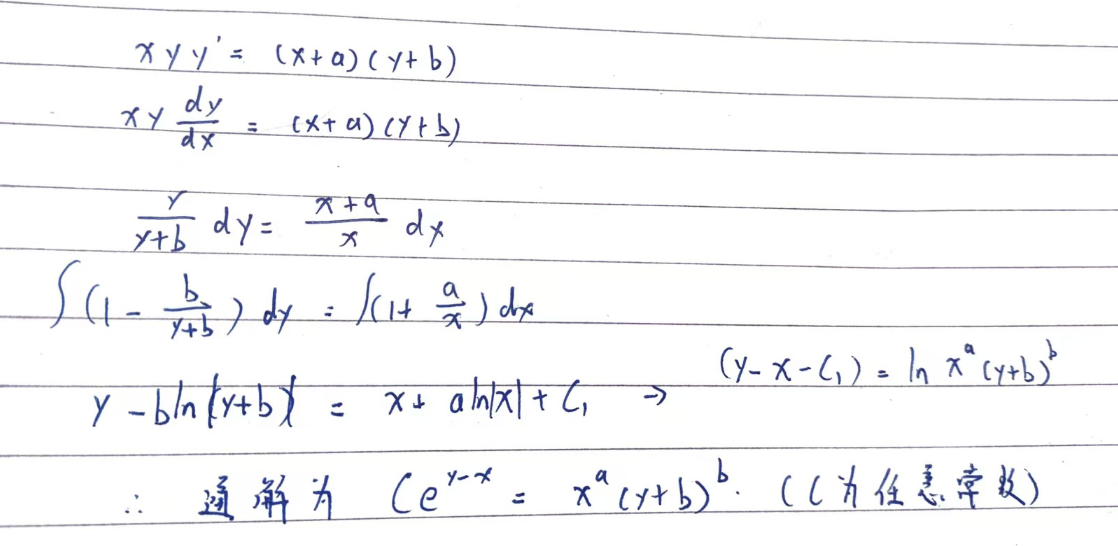 xyy' = (x+a)(y+b)
xy dy/dx = (x+a)(y+b)
y/(y+b) dy = (x+a)/x dx
∫(1 - b/(y+b)) dy = ∫(1 + a/x) dx
y - b ln|y+b| = x + a ln|x| + C₁ → (y-x-C₁) = ln x^a (y+b)^b
∴ 通解为 Ce^(y-x) = x^a (y+b)^b. (C为任意常数)